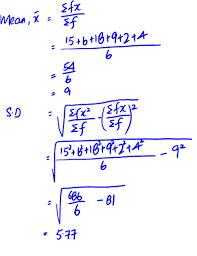 Mean, x̄ = Σfx / Σf
= 15+6+18+9+2+4 / 6
= 54 / 6
= 9
S.D = √(Σfx² / Σf - (Σfx / Σf)²)
= √(15²+6²+18²+9²+2²+4² / 6 - 9²
= √(686 / 6 - 81
= 5.77